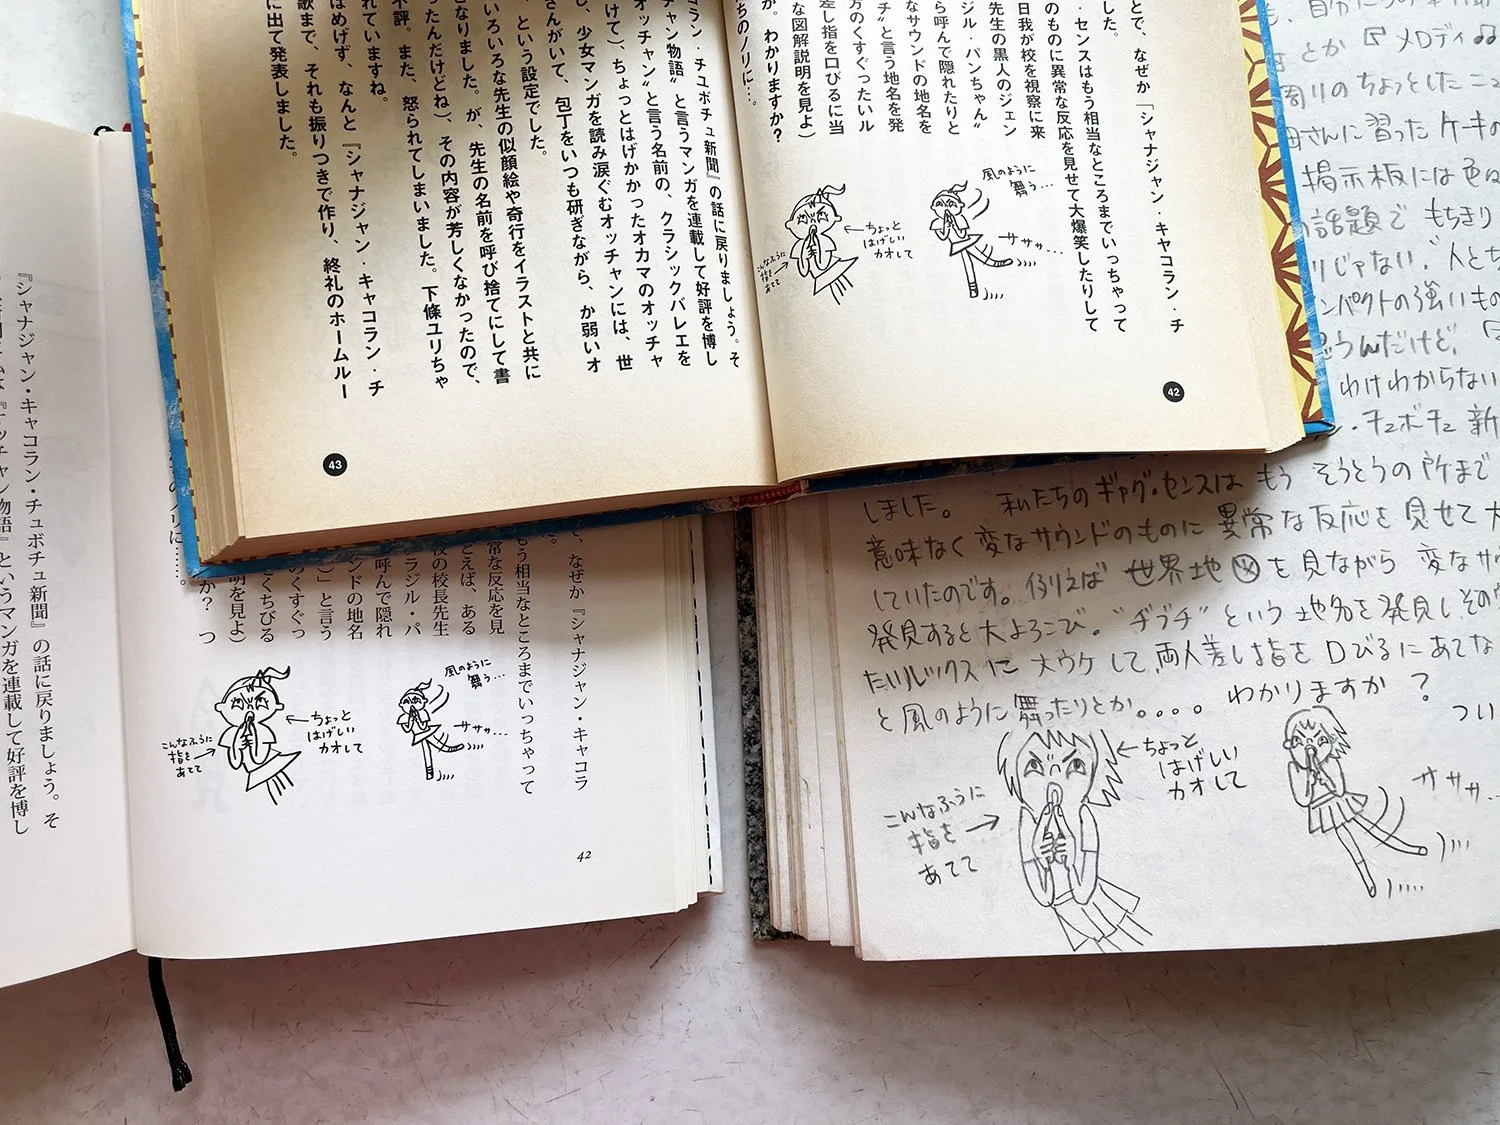 とで、なぜか「シャナジャン・キャコラン・チ
ました。
・センスはもう相当なところまでいっちゃって
のものに異常な反応を見せて大爆笑したりして
日我が校を視察に来
先生の黒人のジェン
ジル・パンちゃん〟
ら呼んで隠れたりと
なサウンドの地名を
チ〟と言う地名を発
方のくすぐったいル
差し指を口びるに当
な図解説明を見よ)
か。わかりますか?
ちのノリに…。
風のように
舞う…
サササ…
ちょっと
はげしい
カオして
こんなふうに
指を
あてて
42
コラン・チュボチュ新聞』の話に戻りましょう。そ
チャン物語〟と言うマンガを連載して好評を博し
オッチャン〟と言う名前の、クラシックバレエを
けて)、ちょっとはげかかったオカマのオッチャ
し、少女マンガを読み涙ぐむオッチャンには、世
さんがいて、包丁をいつも研ぎながら、か弱いオ
、という設定でした。
いろいろな先生の似顔絵や奇行をイラストと共に
となりました。が、先生の名前を呼び捨てにして書
ったんだけどね)、その内容が芳しくなかったので、
不評。また、怒られてしまいました。下條ユリちゃ
れていますね。
はめげず、なんと『シャナジャン・キャコラン・チ
歌まで、それも振りつきで作り、終礼のホームルー
に出て発表しました。
43
で、なぜか『シャナジャン・キャコラ
た。
もう相当なところまでいっちゃって
常な反応を見
とえば、ある
校の校長先生
ラジル・パ
呼んで隠れ
ンドの地名
」と言う
のくすぐっ
くちびる
明を見よ)
か? つ
ノリに……。
風のように
舞う…
サササ…
ちょっと
はげしい
カオして
こんなふうに
指を
あてて
42
『シャナジャン・キャコラン・チュボチュ新聞』の話に戻りましょう。そ
『オッチャン物語』というマンガを連載して好評を博し
とか『メロディ
周りのちょっとしたニュ
母さんに習ったケーキの
掲示板には色
の話題でもちきり
りじゃない、〝人とち
ンパクトの強いもの
思うんだけど、
わけわからない
ン・チュボチュ新
しました。 私たちのギャグ・センスはもう そうとうの所まで
意味なく変なサウンドのものに異常な反応を見せて大
していたのです。例えば 世界地図を見ながら 変なサウ
発見すると大よろこび。〝ヂヅチ〟という 地名を発見し、その
たいルックスに 大ウケして、両人差し指を口びるにあてな
と風のように舞ったりとか。。。。 わかりますか?
つい
ちょっと
はげしい
カオして
こんなふうに
指を
あてて
サササ…